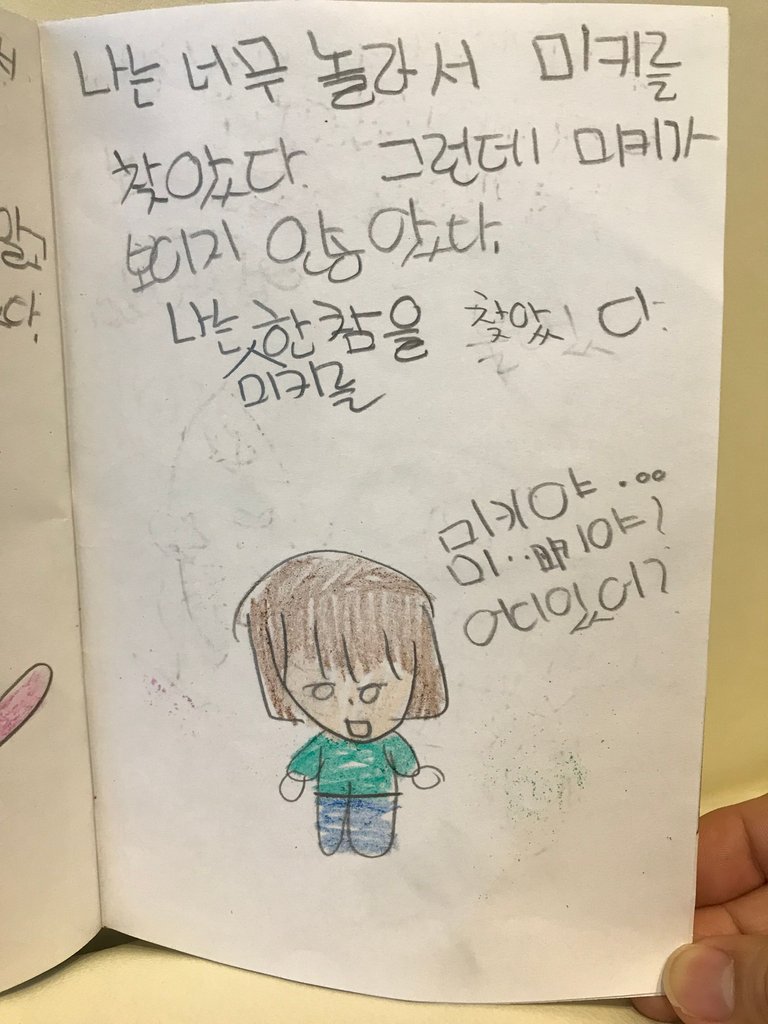 나는 너무 놀라서 미키를
찾았다. 그런데 미키가
보이지 안았다.
나는 미키를 한참을 찾았다.
미키야...
미..미키야?
어디있어?